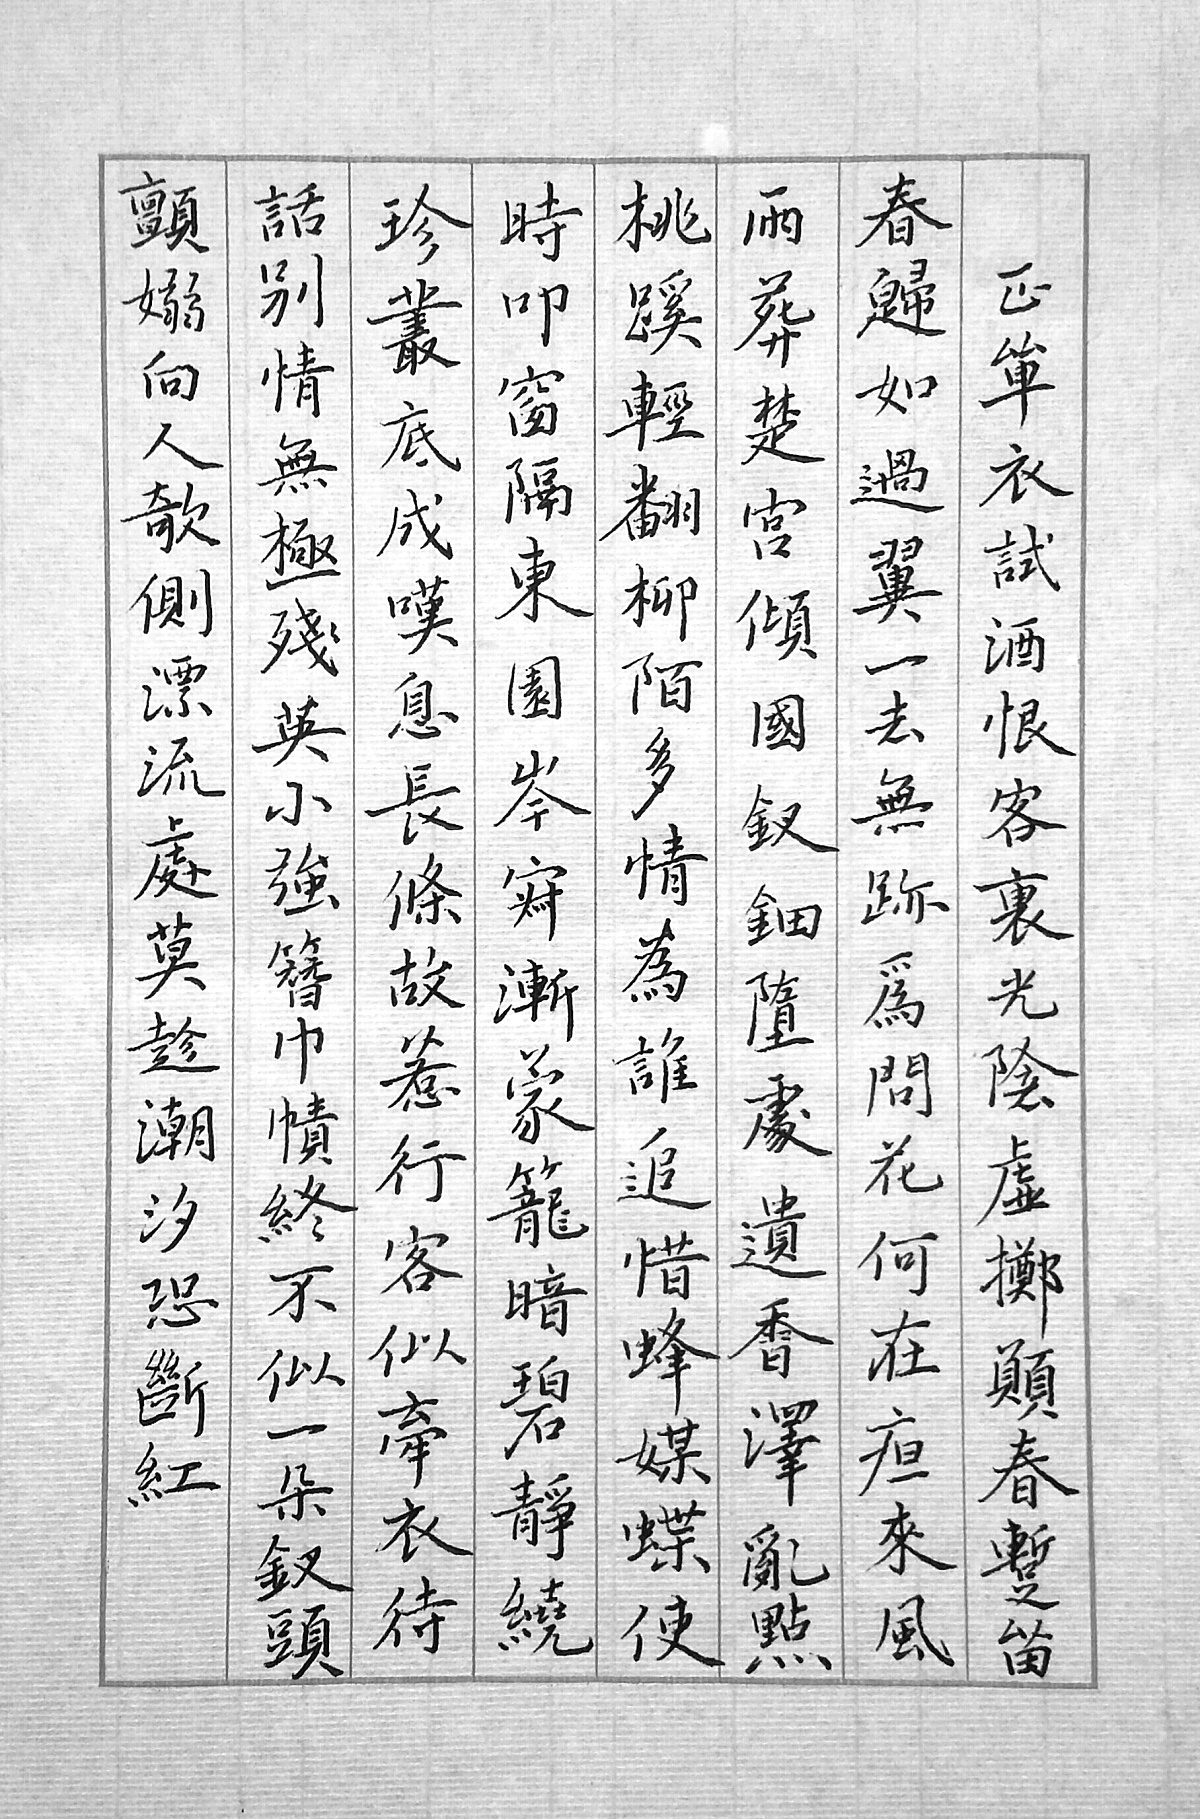 正單衣試酒恨客裏光陰虛擲願春暫留
春歸如過翼一去無跡爲問花何在夜來風
雨葬楚宮傾國釵鈿墮處遺香澤亂點
桃蹊輕翻柳陌多情為誰追惜蜂媒蝶使
時叩窗隔東園岑寂漸蒙籠暗碧靜繞
珍叢底成嘆息長條故惹行客似牽衣待
話別情無極殘英小強簪巾幘終不似一朵釵頭
顫嫋向人欹側漂流處莫趁潮汐恐斷紅